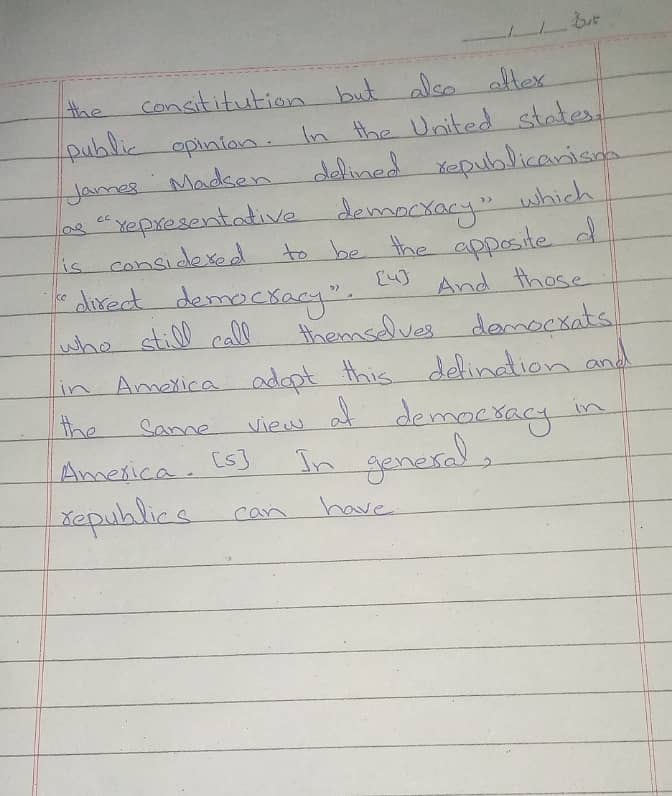 the consititution but also after
public opinion. In the United states,
James Madsen defined republicanism
as "representative democracy" which
is considered to be the apposite of
"direct democracy". [4] And those
who still call themselves democrats
in America adopt this defination and
the same view of democracy in
America. [5] In general,
republics can have